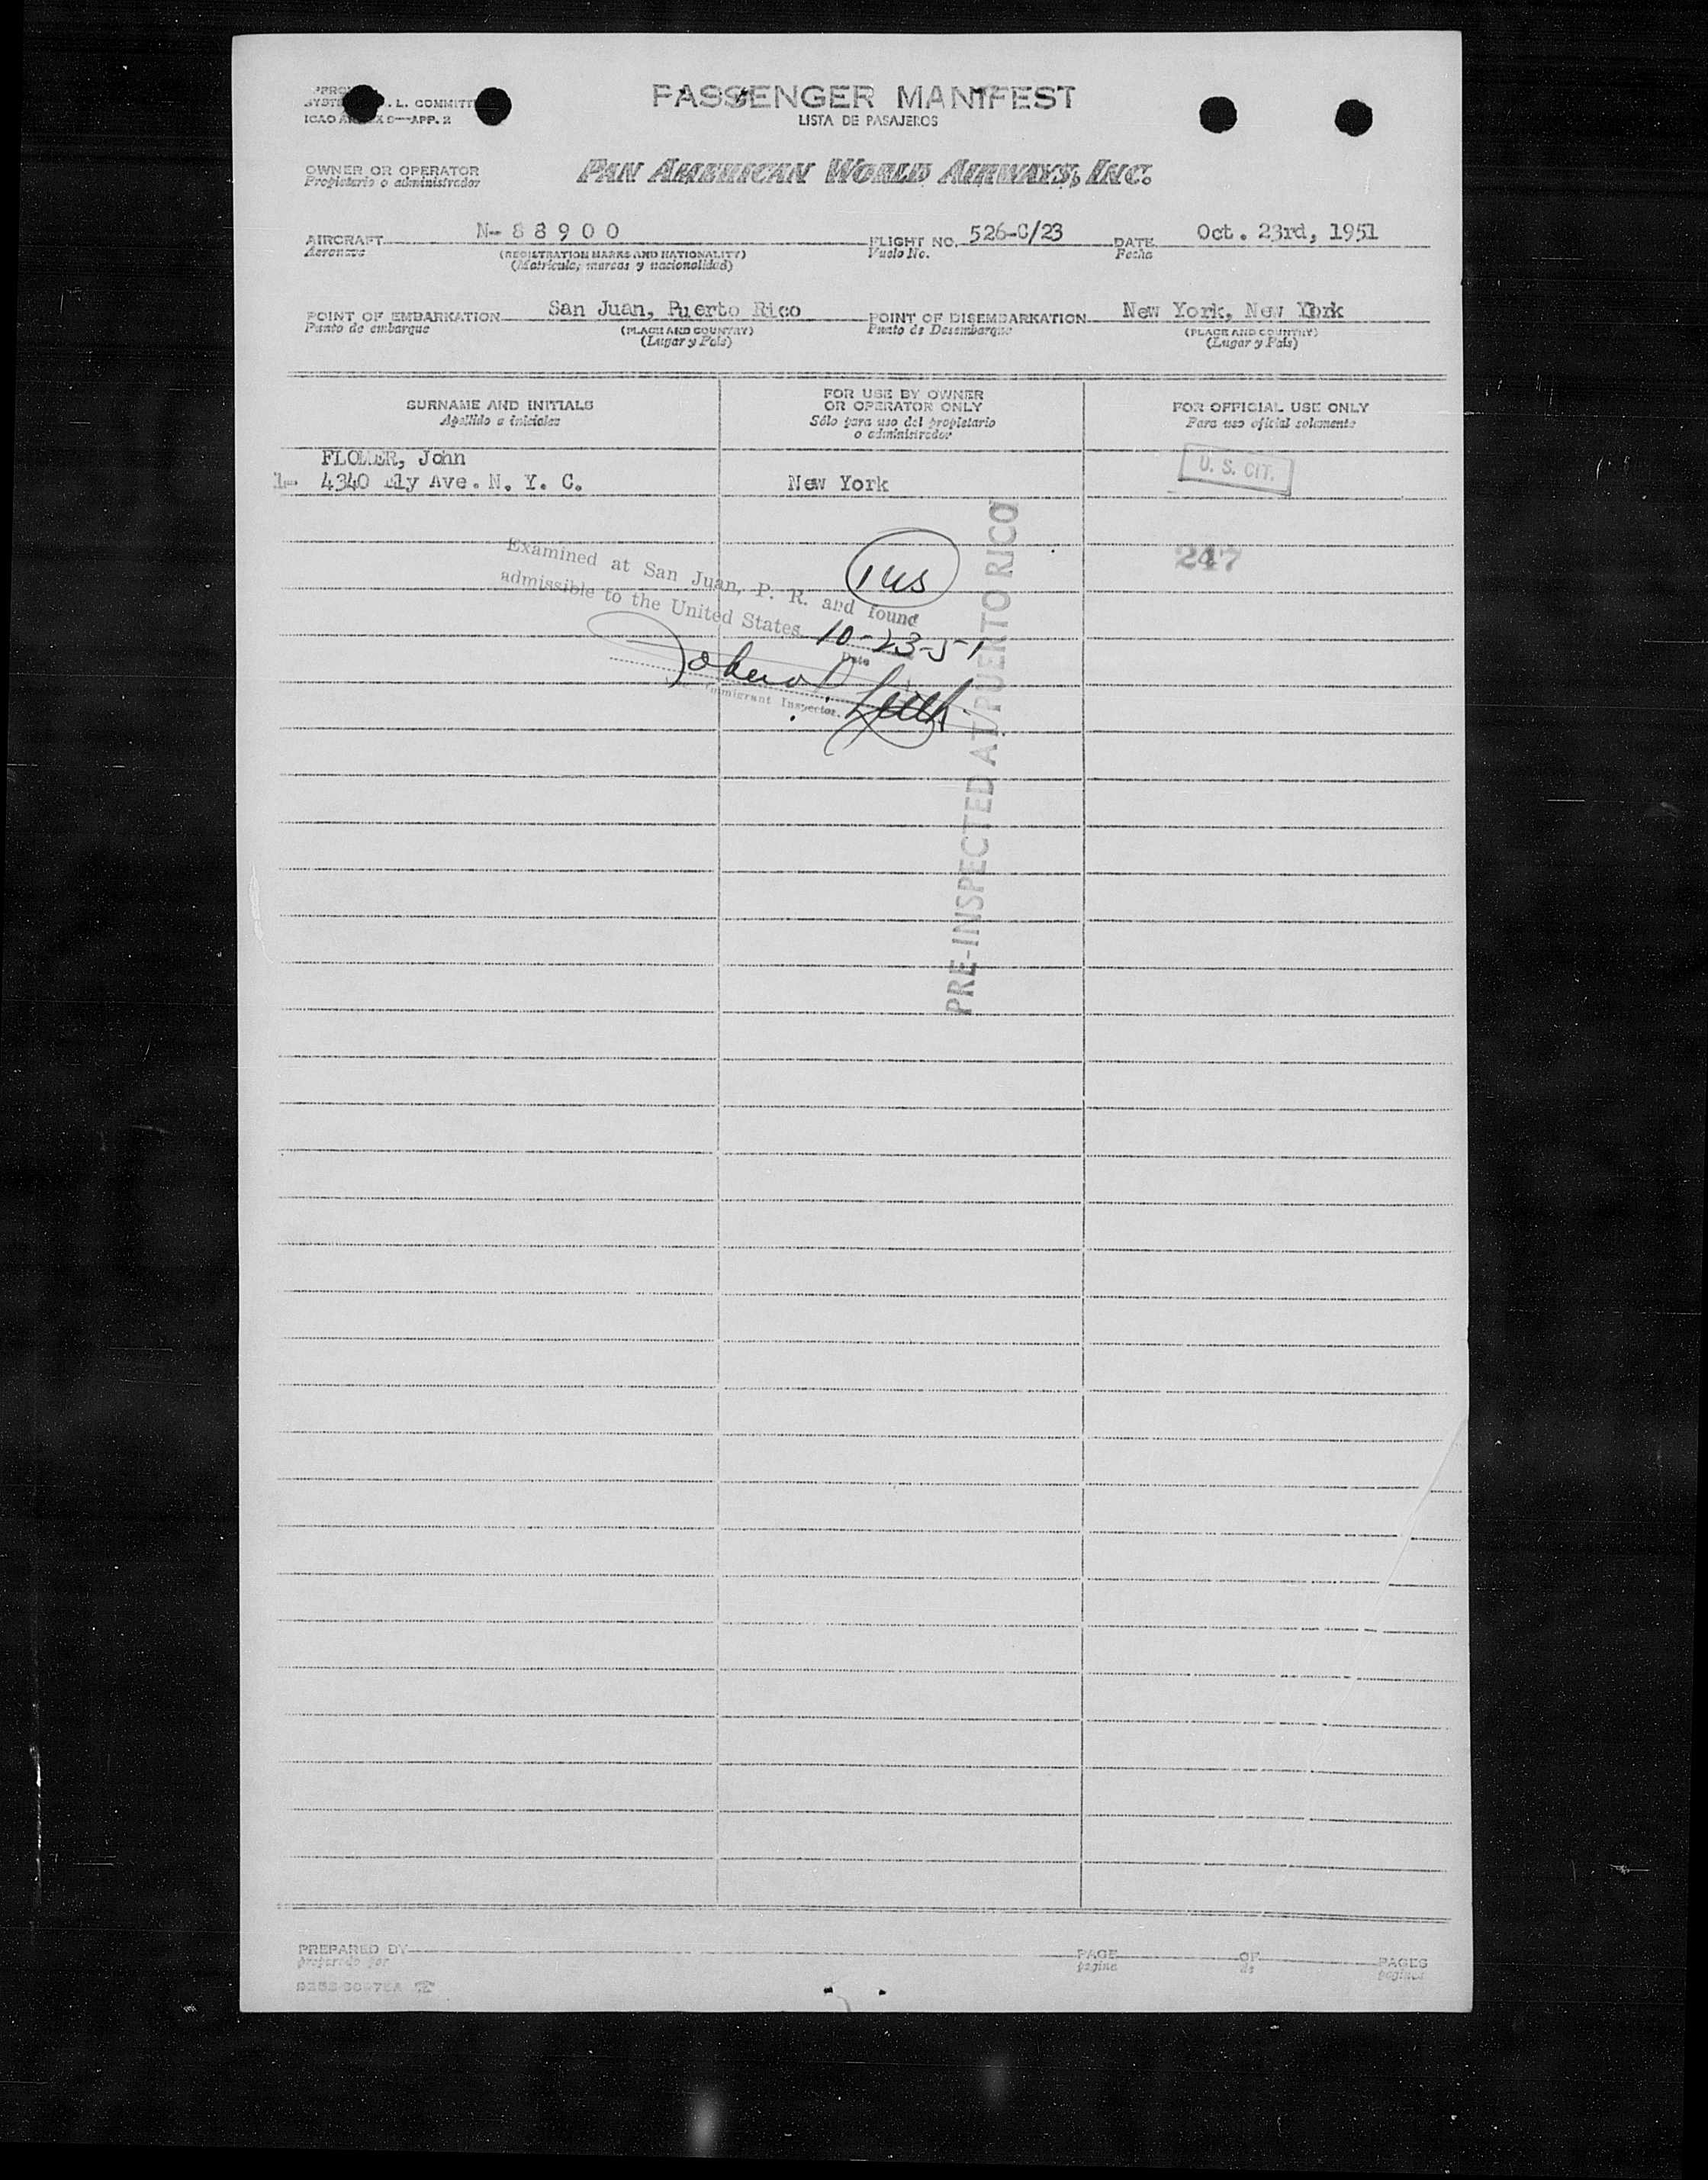 PASSENGER MANIFEST
LISTA DE PASAJEROS
L. COMMITT
ICAO APP. 2
OWNER OR OPERATOR
Propietario o administrador
PAN AMERICAN WORLD AIRWAYS, INC.
AIRCRAFT N- 8 8 9 0 0 FLIGHT NO. 526-C/23 DATE Oct. 23rd, 1951
Aeronave (REGISTRATION MARKS AND NATIONALITY) Vuelo No. Fecha
(Matricula, marcas y nacionalidad)
POINT OF EMBARKATION San Juan, Puerto Rico POINT OF DISEMBARKATION New York, New York
Punto de embarque (PLACE AND COUNTRY) Punto de Desembarque (PLACE AND COUNTRY)
(Lugar y País) (Lugar y País)
SURNAME AND INITIALS FOR USE BY OWNER OR OPERATOR ONLY FOR OFFICIAL USE ONLY
Apellido e iniciales Sólo para uso del propietario o administrador Para uso oficial solamente
FLOMER, John
1- 4340 Ely Ave. N. Y. C. New York U. S. CIT.
247
1 US
Examined at San Juan, P. R. and found
admissible to the United States 10-23-51
Date
Immigrant Inspector
PRE-INSPECTED AT PUERTO RICO
PREPARED BY PAGE OF PAGES
preparado por página de páginas